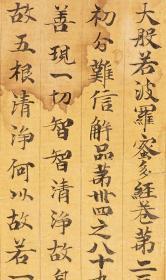 大般若波羅蜜多經卷第二
初分難信解品第卌四之八十九
善現一切智智清淨故
故五根清淨何以故若一